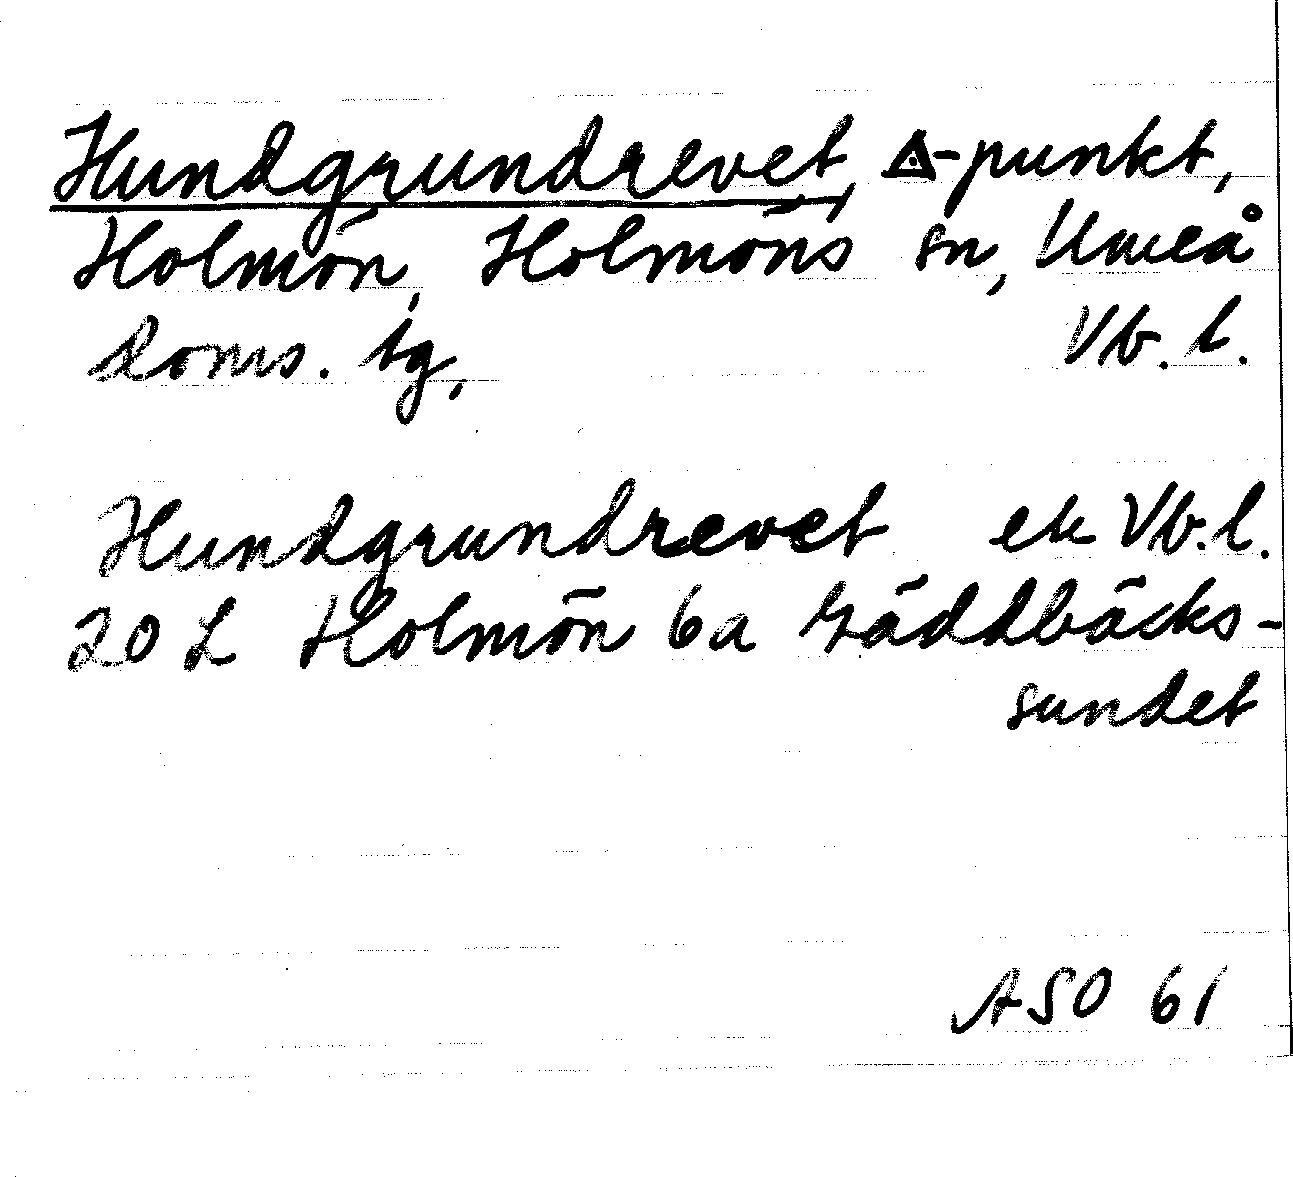 Hundgrundrevet, △-punkt,
Holmön, Holmöns sn, Umeå
Doms. tg, Vb. l.
Hundgrundrevet ek Vb. l.
20 L Holmön 6a Gäddbäcks-
sundet
ASO 61